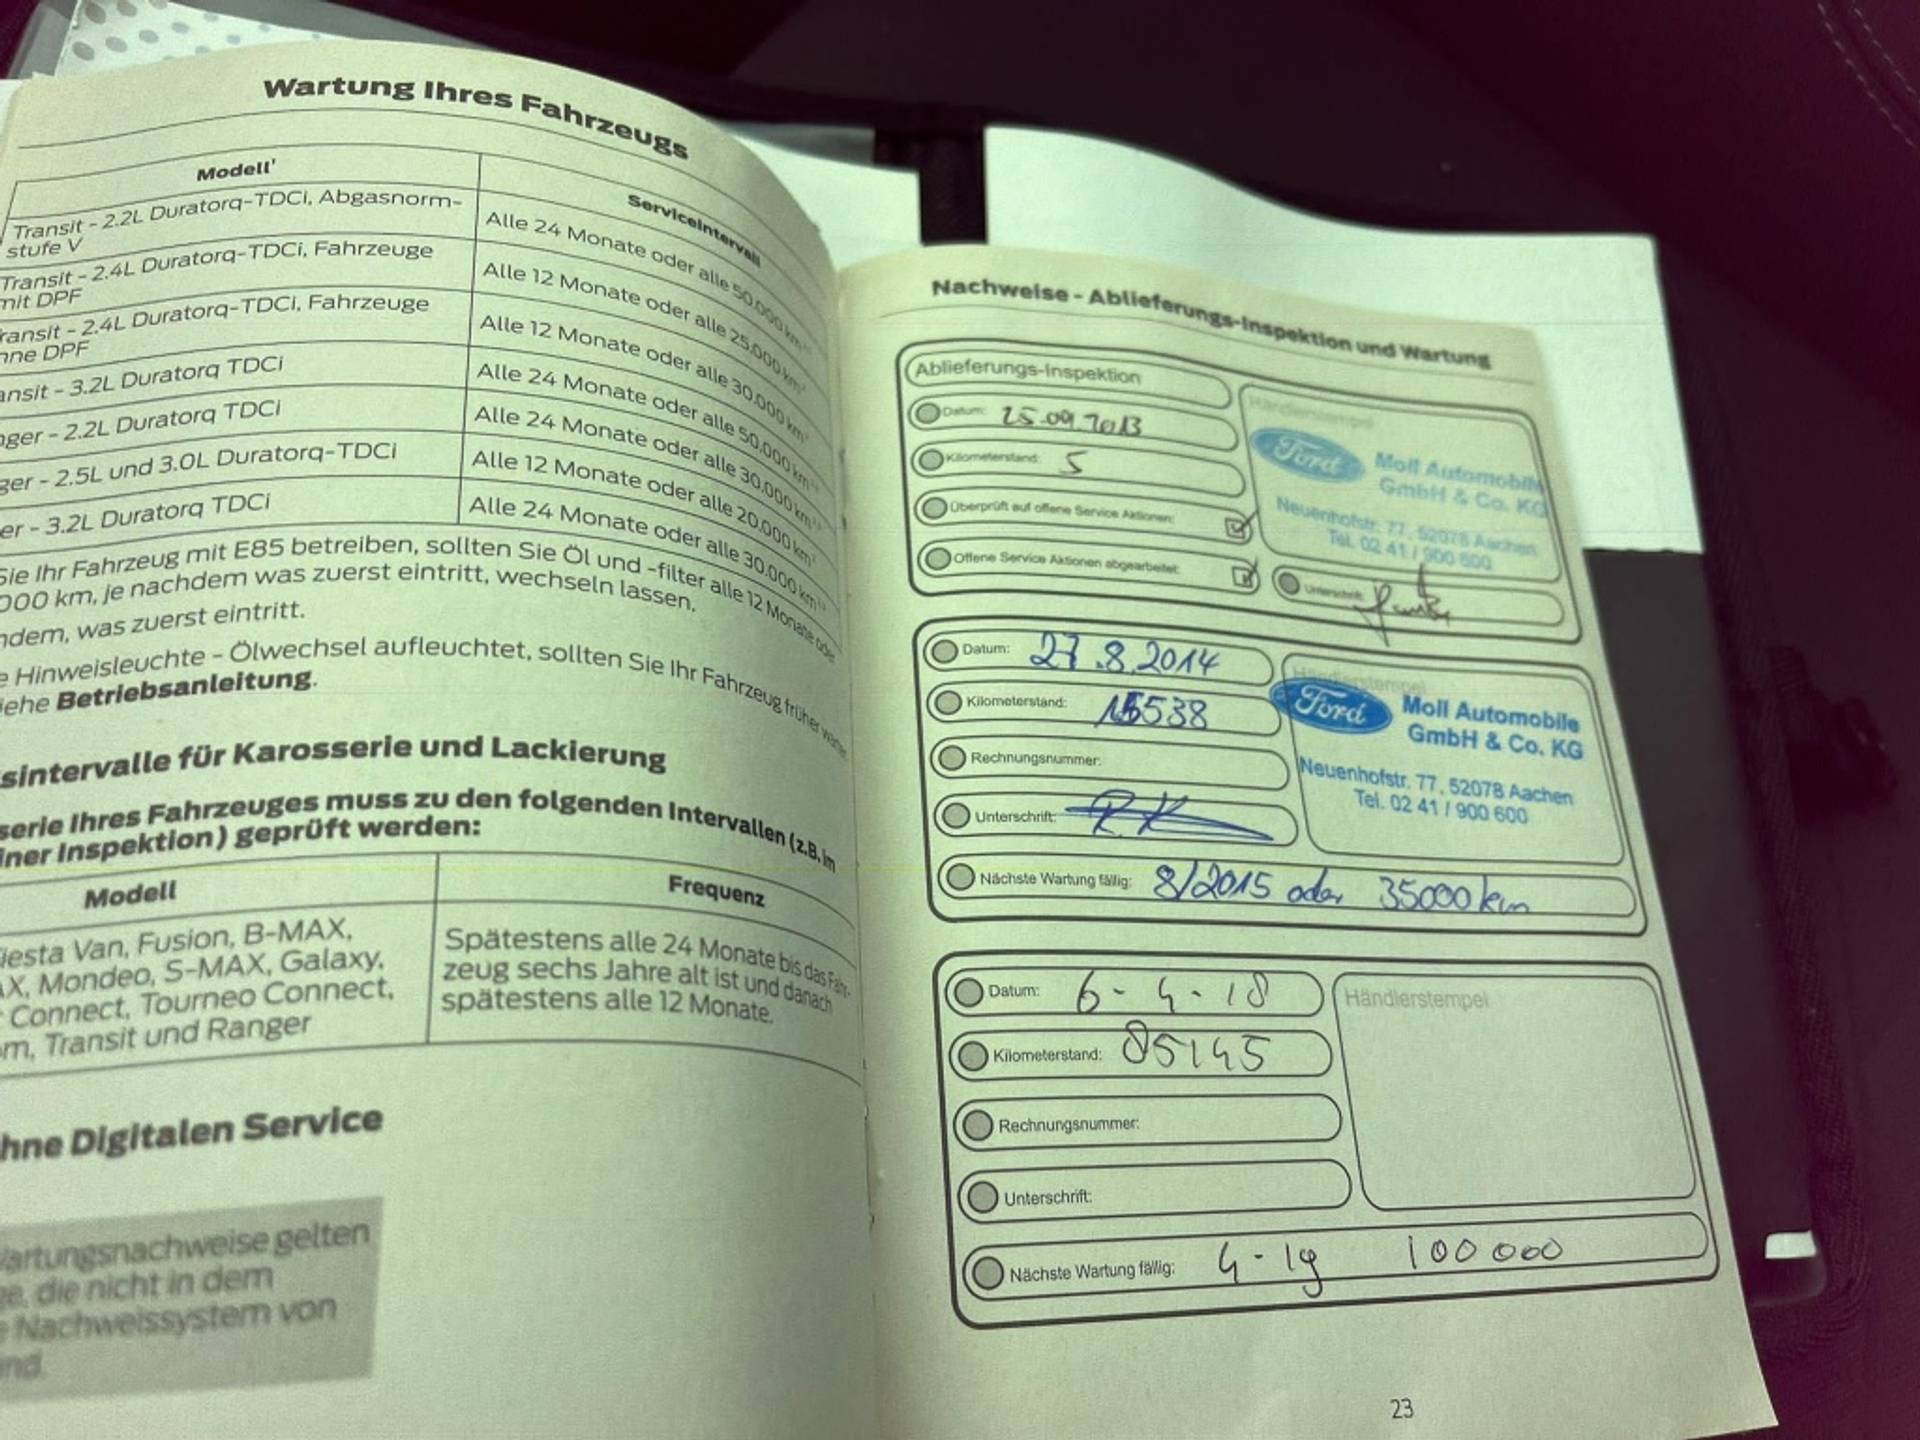 Wartung Ihres Fahrzeugs
Modell¹
Serviceintervall
Transit - 2.2L Duratorq-TDCi, Abgasnorm-
stufe V
Alle 24 Monate oder alle 50.000 km
Transit - 2.4L Duratorq-TDCi, Fahrzeuge
mit DPF
Alle 12 Monate oder alle 25.000 km
ransit - 2.4L Duratorq-TDCi, Fahrzeuge
hne DPF
Alle 12 Monate oder alle 30.000 km
ansit - 3.2L Duratorq TDCi
Alle 24 Monate oder alle 50.000 km
ger - 2.2L Duratorq TDCi
Alle 24 Monate oder alle 30.000 km
ger - 2.5L und 3.0L Duratorq-TDCi
Alle 12 Monate oder alle 20.000 km
er - 3.2L Duratorq TDCi
Alle 24 Monate oder alle 30.000 km
Sie Ihr Fahrzeug mit E85 betreiben, sollten Sie Öl und -filter alle 12 Monate oder
000 km, je nachdem was zuerst eintritt, wechseln lassen.
ndem, was zuerst eintritt.
e Hinweisleuchte - Ölwechsel aufleuchtet, sollten Sie Ihr Fahrzeug früher warten
iehe Betriebsanleitung.
sintervalle für Karosserie und Lackierung
serie Ihres Fahrzeuges muss zu den folgenden Intervallen (z.B. im
iner Inspektion) geprüft werden:
Modell
Frequenz
iesta Van, Fusion, B-MAX,
AX, Mondeo, S-MAX, Galaxy,
Connect, Tourneo Connect,
om, Transit und Ranger
Spätestens alle 24 Monate bis das Fahr-
zeug sechs Jahre alt ist und danach
spätestens alle 12 Monate.
hne Digitalen Service
Wartungsnachweise gelten
ge, die nicht in dem
e Nachweissystem von
ind.
Nachweise - Ablieferungs-Inspektion und Wartung
Ablieferungs-Inspektion
Datum: 25.09.2013
Kilometerstand: 5
Überprüft auf offene Service Aktionen:
Offene Service Aktionen abgearbeitet:
Händlerstempel
Ford
Moll Automobile
GmbH & Co. KG
Neuenhofstr. 77, 52078 Aachen
Tel. 02 41 / 900 600
Unterschrift:
Datum: 27.8.2014
Kilometerstand: 15538
Rechnungsnummer:
Unterschrift:
Händlerstempel
Ford
Moll Automobile
GmbH & Co. KG
Neuenhofstr. 77, 52078 Aachen
Tel. 02 41 / 900 600
Nächste Wartung fällig: 8/2015 oder 35000 km
Datum: 6-4-18
Kilometerstand: 85145
Rechnungsnummer:
Unterschrift:
Händlerstempel
Nächste Wartung fällig: 4-19 100 000
23